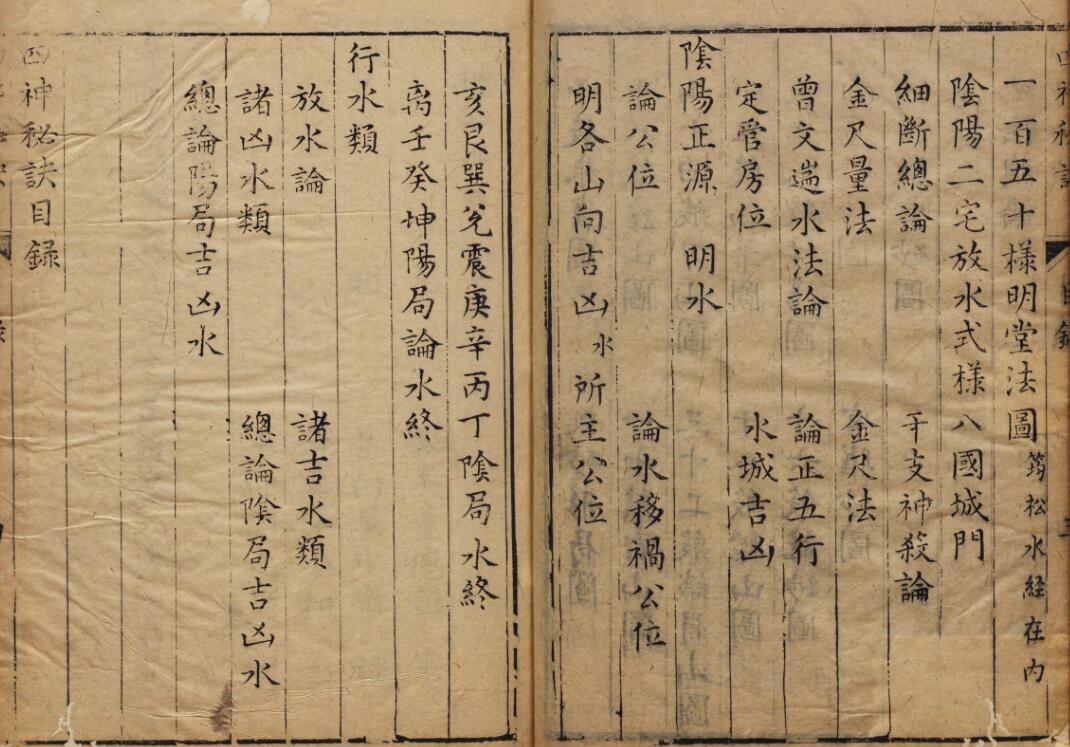 一百五十様明堂法圖 筠松水経在内
陰陽二宅放水式様 八國城門
細斷總論 干支神殺論
金尺量法 金尺法
曾文遄水法論 論正五行
定管房位 水城吉凶
陰陽正源 明水
論公位 論水移禍公位
明各山向吉凶水所主公位
亥艮巽兌震庚辛丙丁陰局水終
离壬癸坤陽局論水終
行水類
放水論 諸吉水類
諸凶水類 總論陰局吉凶水
總論陽局吉凶水
四神秘訣目録